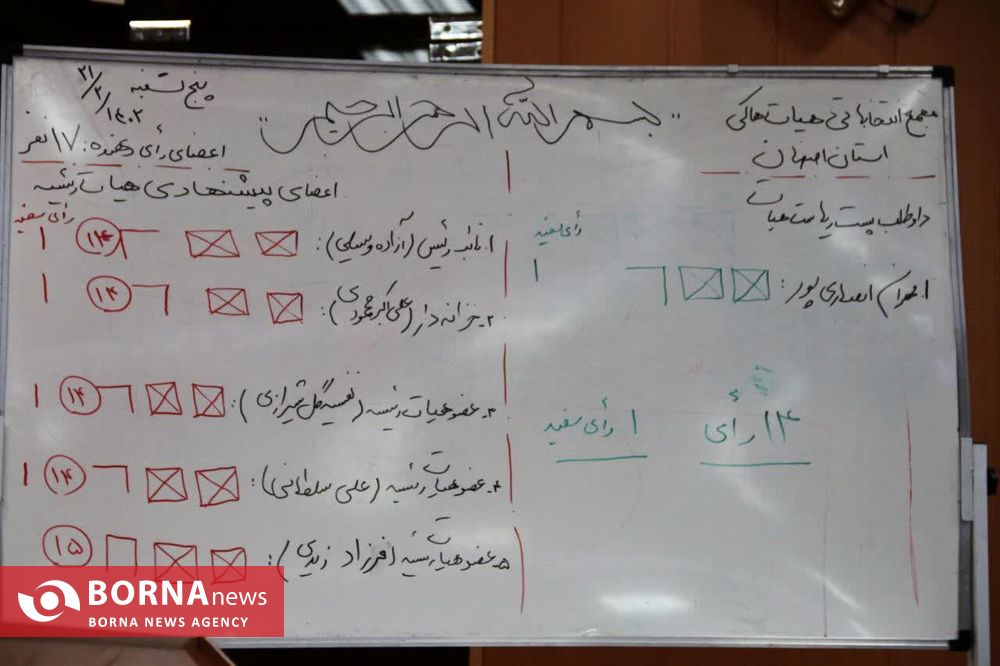 "بسم الله الرحمن الرحیم"
مجمع انتخاباتی هیات هاکی
استان اصفهان
داوطلب پست ریاست هیات
رأی سفید
۱. مهران انصاری پور: ۱
۱۴ رأی
۱ رأی سفید
پنج شنبه
۱۴۰۲/۲/۲۱
اعضای رأی دهنده: ۱۷ نفر
اعضای پیشنهادی هیات رئیسه
رأی سفید
۱. نائب رئیس (آزاده وسلی): ۱۴ ۱
۲. خزانه دار (علی اکبر محمودی): ۱۴ ۱
۳. عضو هیات رئیسه (نفیسه گل شیرازی): ۱۴ ۱
۴. عضو هیات رئیسه (علی سلطانی): ۱۴ ۱
۵. عضو هیات رئیسه (فرزاد زیدی): ۱۵
BORNA news
BORNA NEWS AGENCY